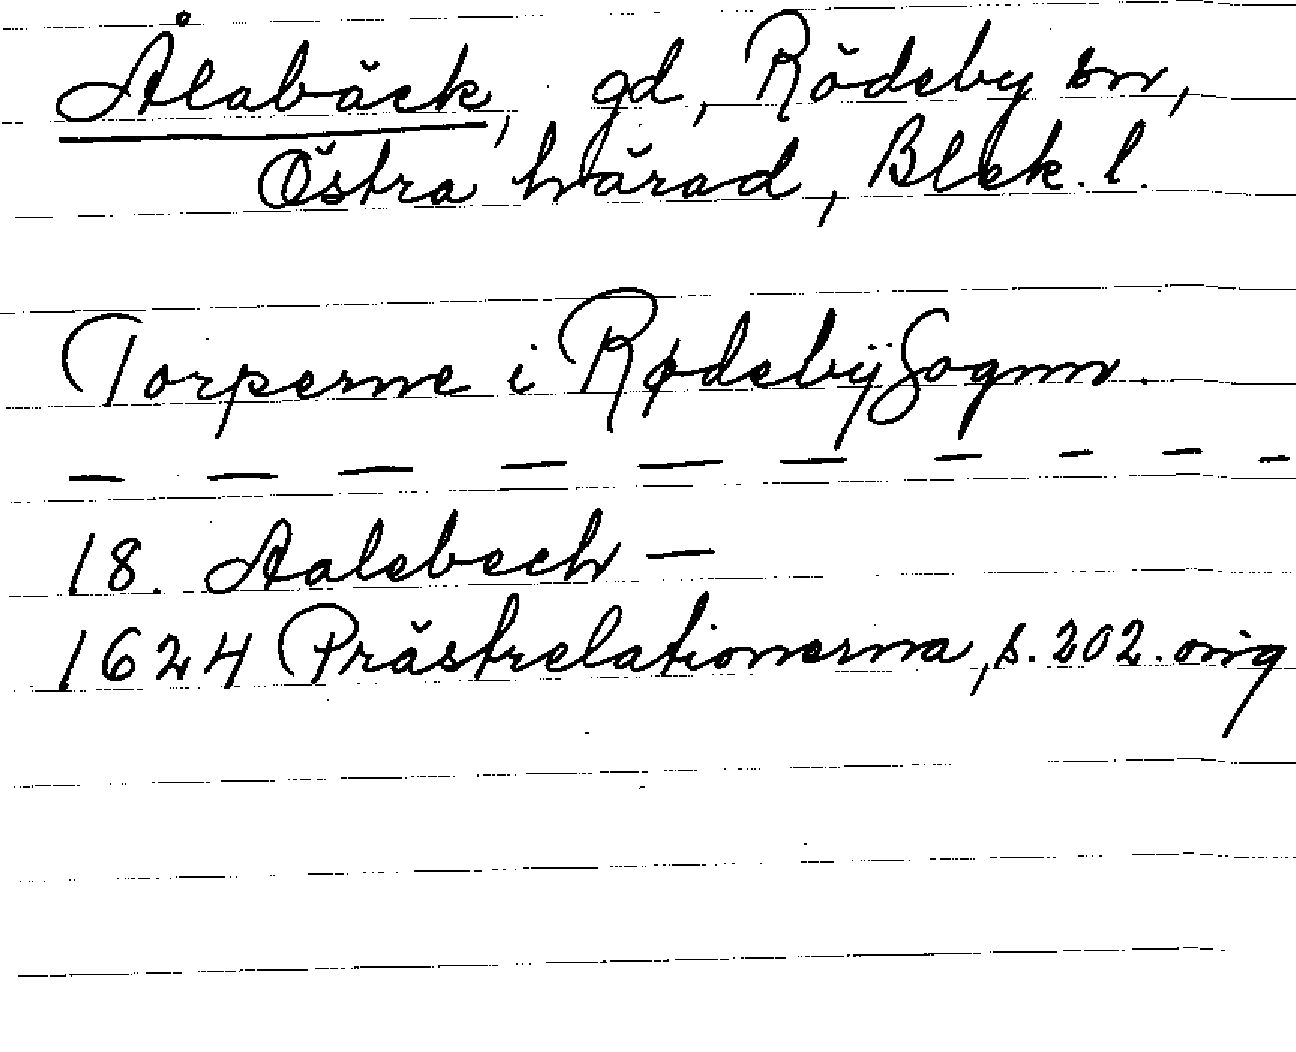 Ålabäck, gd, Rödeby sn,
Östra härad, Blek. l.
Torperne i Rødebÿ Sognn.
— — — — — — — — — —
18. Aalebech —
1624 Prästrelationerna, s. 202. orig